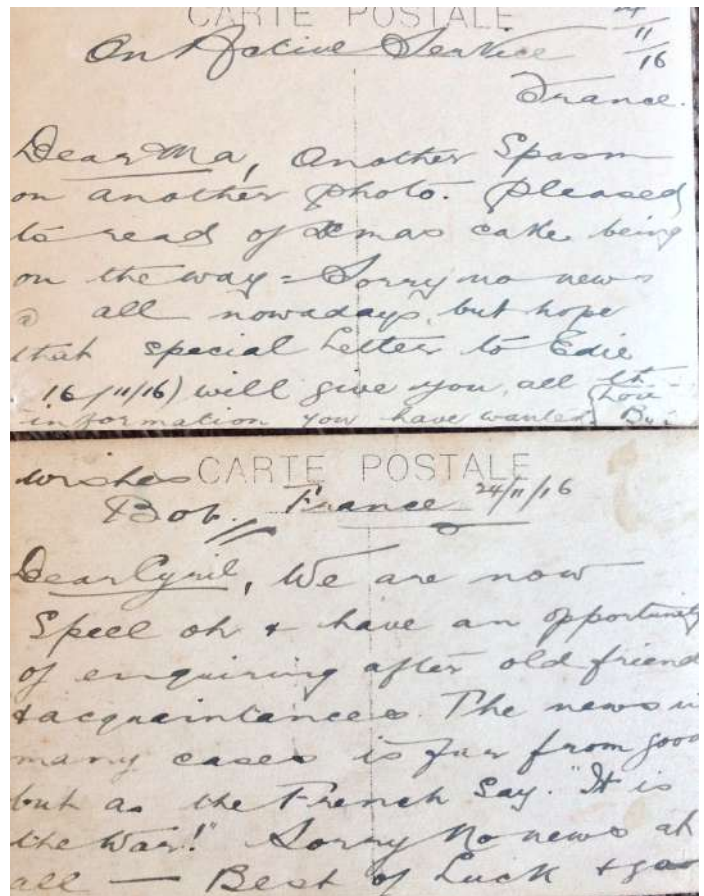 CARTE POSTALE
24
On Active Service 11
16
France.
Dear Ma, Another Spasm
on another photo. Pleased
to read of Xmas cake being
on the way = Sorry no news
@ all nowadays, but hope
that special Letter to Edie
16/11/16) will give you all the
information you have wanted. Love
wishes CARTE POSTALE
Bob. France 24/11/16
Dear Cyril, We are now
Speel oh & have an opportunity
of enquiring after old friend
& acquaintances. The news in
many cases is far from good
but as the French say. "It is
the War!" Sorry No news at
all — Best of Luck &